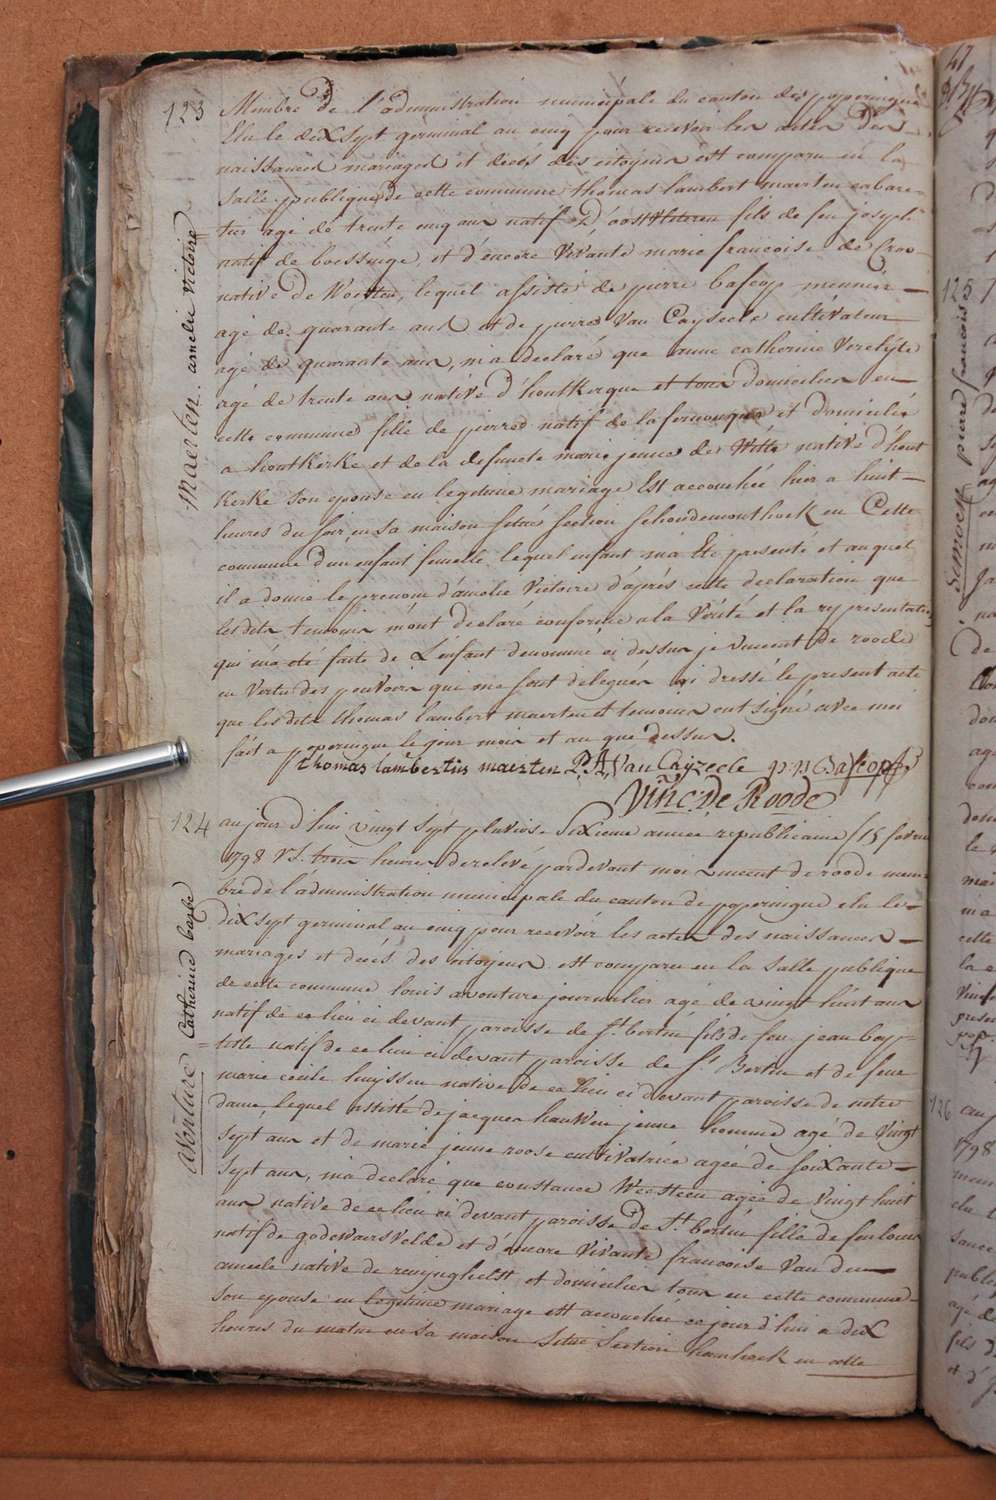 123
Maerten amelie victoire
Membre de l'administration municipale du canton de poperingue
Elu le dix sept germinal an cinq pour recevoir les actes des
naissances mariages et décés des citoyens est comparu en la
salle publique de cette commune thomas lambert maerten cabare-
tier agé de trente cinq ans natif d'oostvleteren fils de feu joseph
natif de boesinge, et d'encore vivante marie francoise de Croo
native de Woesten, lequel assisté de pierre bascop meunier
agé de quarante ans et de pierre Van Cayseele cultivateur
agé de quarante ans, m'a declaré que anne catherine Verelyde
agé de trente ans native d'houtkerque et tous domicilies en
cette commune fille de pierre natif de la et domicilié
a houtkerke et de la defuncte marie jenne de Witte native d'hout
kerke son epouse en legitime mariage Est accouchée hier a huit
heures du soir en sa maison situé section schoudemonthoek en Cette
commune d'un enfant femelle, lequel enfant m'a Eté presenté et auquel
il a donné le prenom d'amélie Victoire d'après cette declaration que
lesdits temoins m'ont declaré conforme a la Vérité et la representatio
qui m'a été faite de L'enfant denommé ci dessus je vincent de roode
en Vertu des pouvoirs qui me sont delegués ai dressé le present acte
que lesdits thomas lambert maerten et temoins ont signé avec moi
fait a poperingue le jour mois et an que dessus.
thomas lambertus maerten P.A. Van Cayzeele p n Bascop
Vinc: De Roode
124
Avonture Catherine barbe
aujourd'hui vingt sept pluviose Sixieme année republicaine (15 fevrie
1798 VS. trois heures de relevé pardevant moi vincent de roode mem
bre de l'administration municipale du canton de poperingue elu le
dix sept germinal an cinq pour recevoir les actes des naissances
mariages et décés des citoyens est comparu en la salle publique
de cette commune louis avonture journalier agé de vingt huit ans
natif de ce lieu ci devant paroisse de st bertin fils de feu jean bap-
tiste natif de ce lieu ci devant paroisse de St Bertin et de feue
marie cecile huyssen native de ce lieu ci devant paroisse de notre
dame, lequel assisté de jacques hauwen jeune homme agé de Vingt
sept ans et de marie jenne roose cultivatrice agée de soixante
sept ans, m'a declaré que constance Weesteen agée de vingt huit
ans native de ce lieu ci devant paroisse de St bertin fille de feu louis
natif de godewaersvelde et d'encore vivante francoise Van den
ameele native de renynghelst et domicilies tous en cette commune
son epouse en legitime mariage est accouchée ce jour d'hui a dix
heures du matin en sa maison Situé Section hamhoek en cette
125
Simoen pierre francois
126